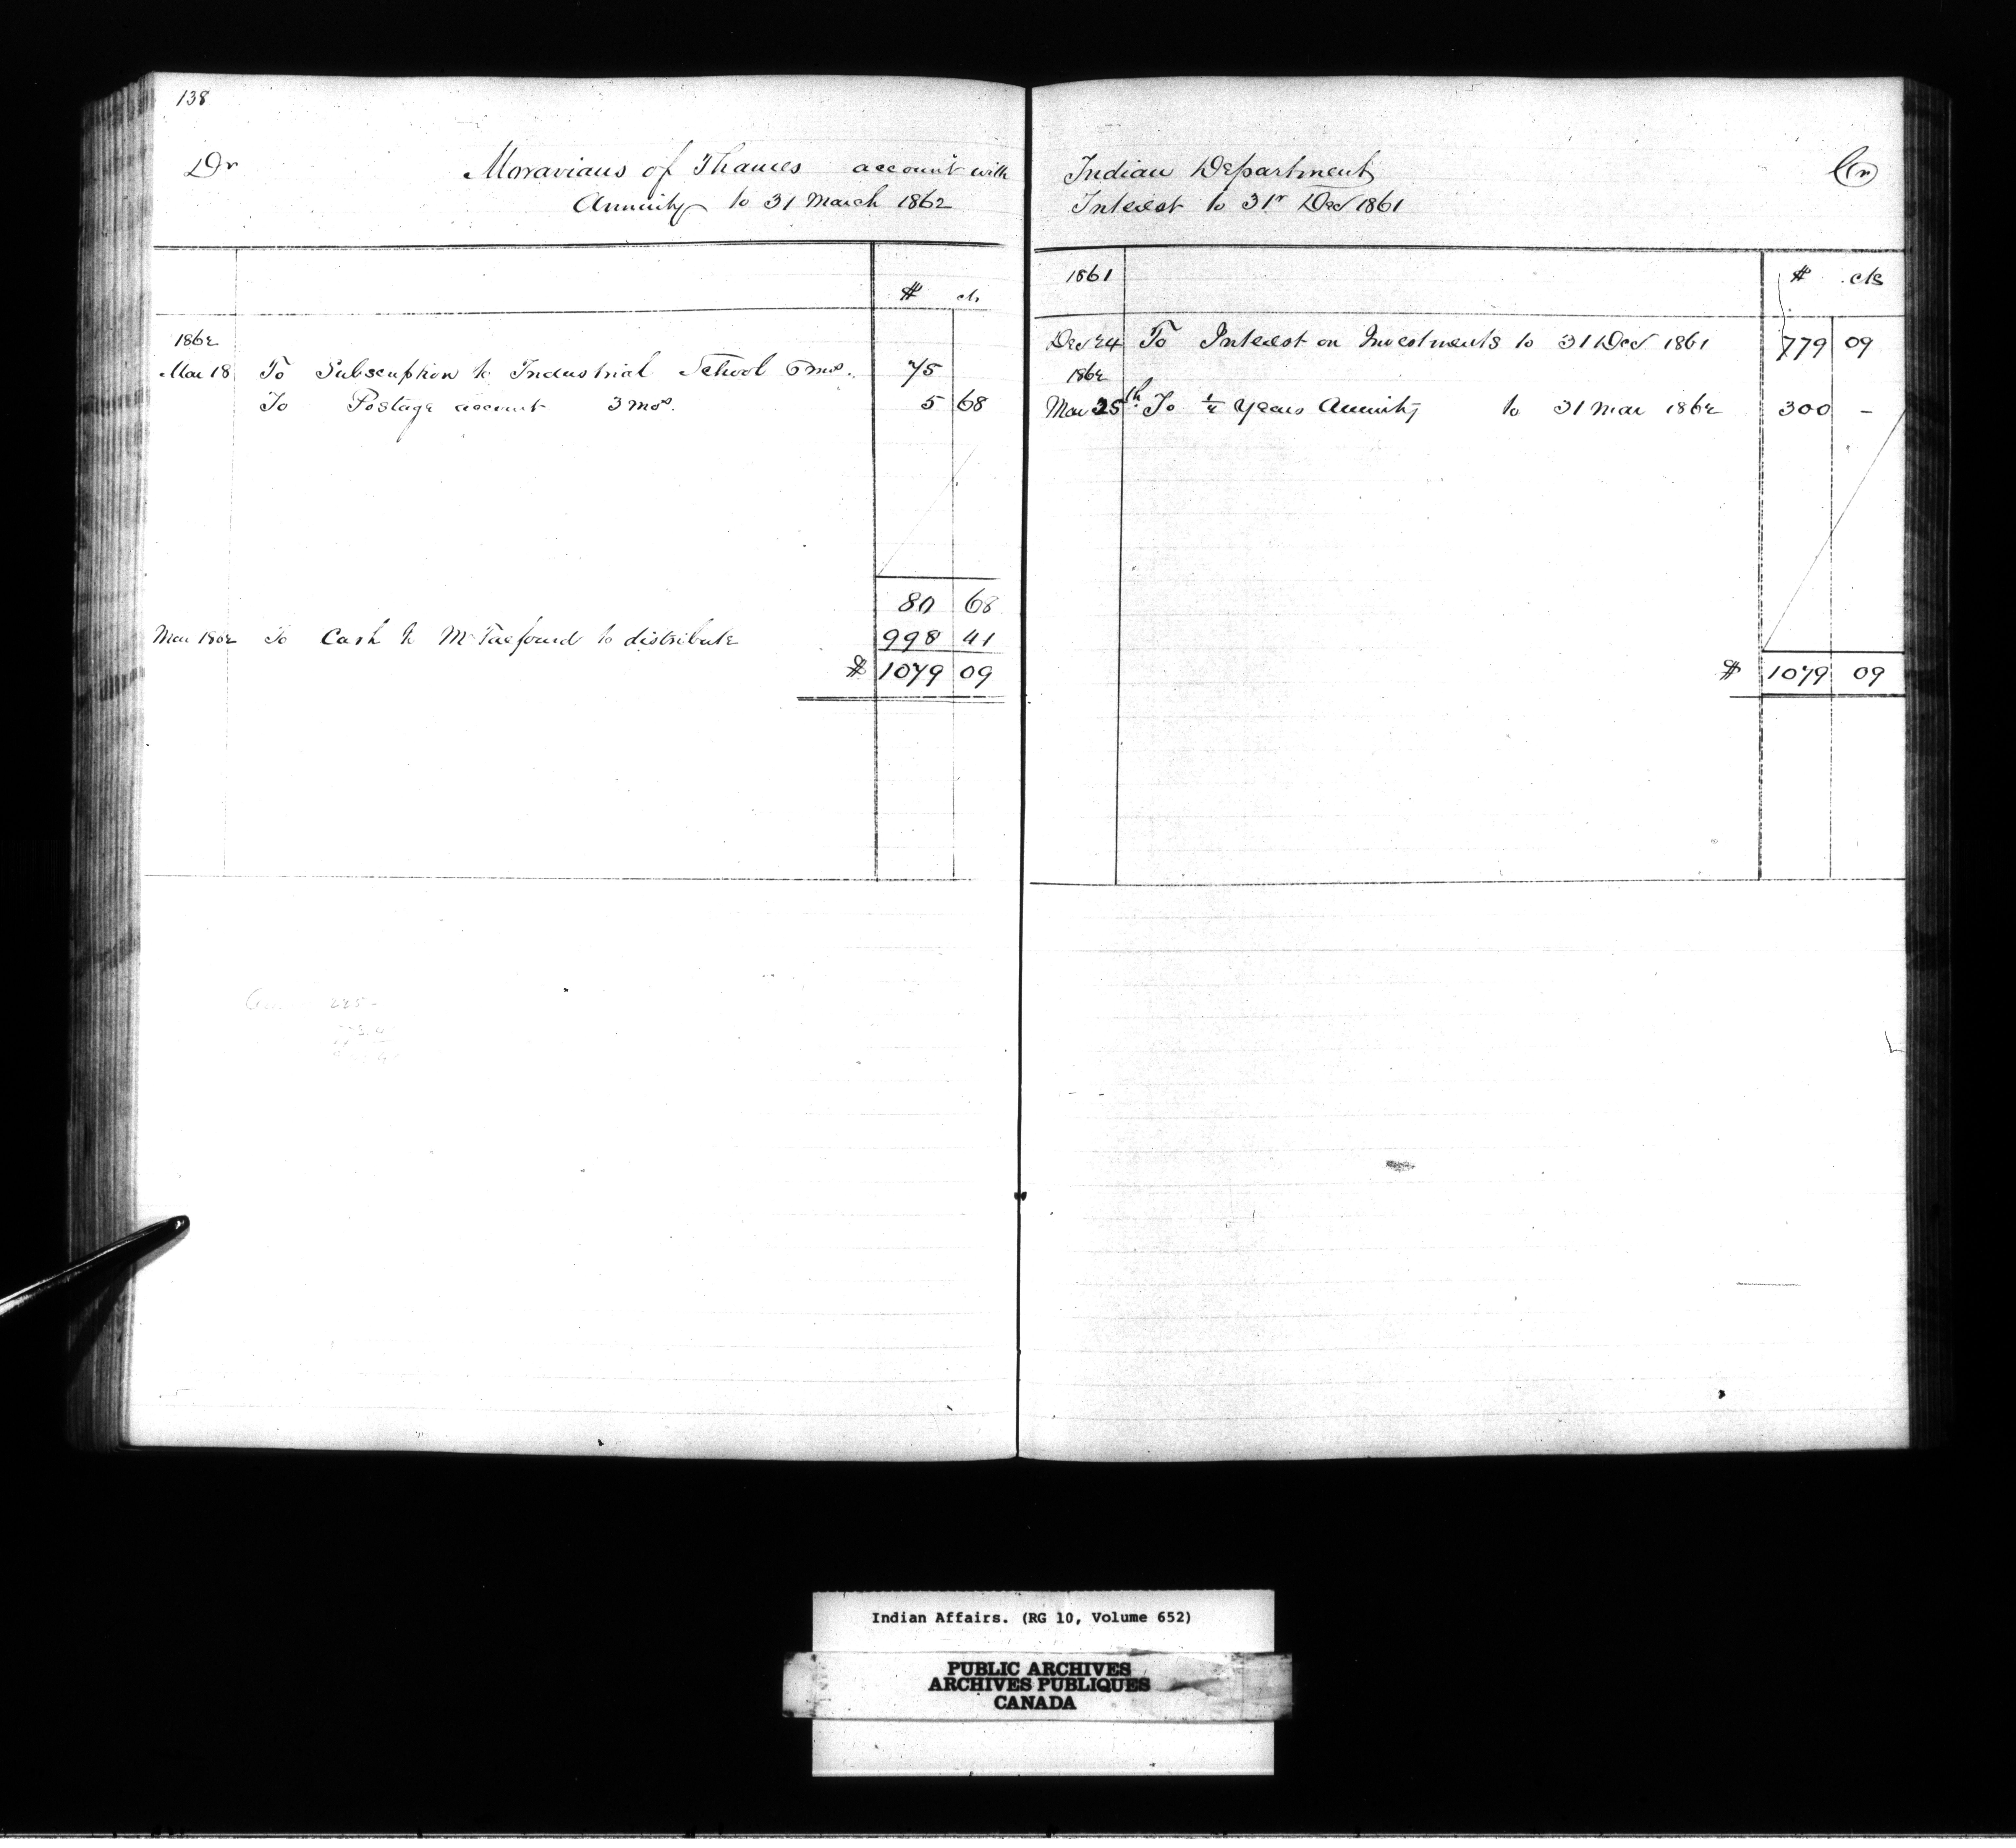 138
Dr Moravians of Thames account with
Annuity to 31 March 1862
$ cts
1862
Mar 18 To Subscription to Industrial School 6 mos. 75
To Postage account 3 mos. 5 68
80 68
Mar 1862 To Cash to Mr Talfourd to distribute 998 41
$ 1079 09
Indian Department Cr
Interest to 31st Dec 1861
1861 $ cts
Dec 24 To Interest on Investments to 31 Dec 1861 779 09
1862
Mar 25th To ½ Years Annuity to 31 Mar 1862 300 -
$ 1079 09
Indian Affairs. (RG 10, Volume 652)
PUBLIC ARCHIVES
ARCHIVES PUBLIQUES
CANADA